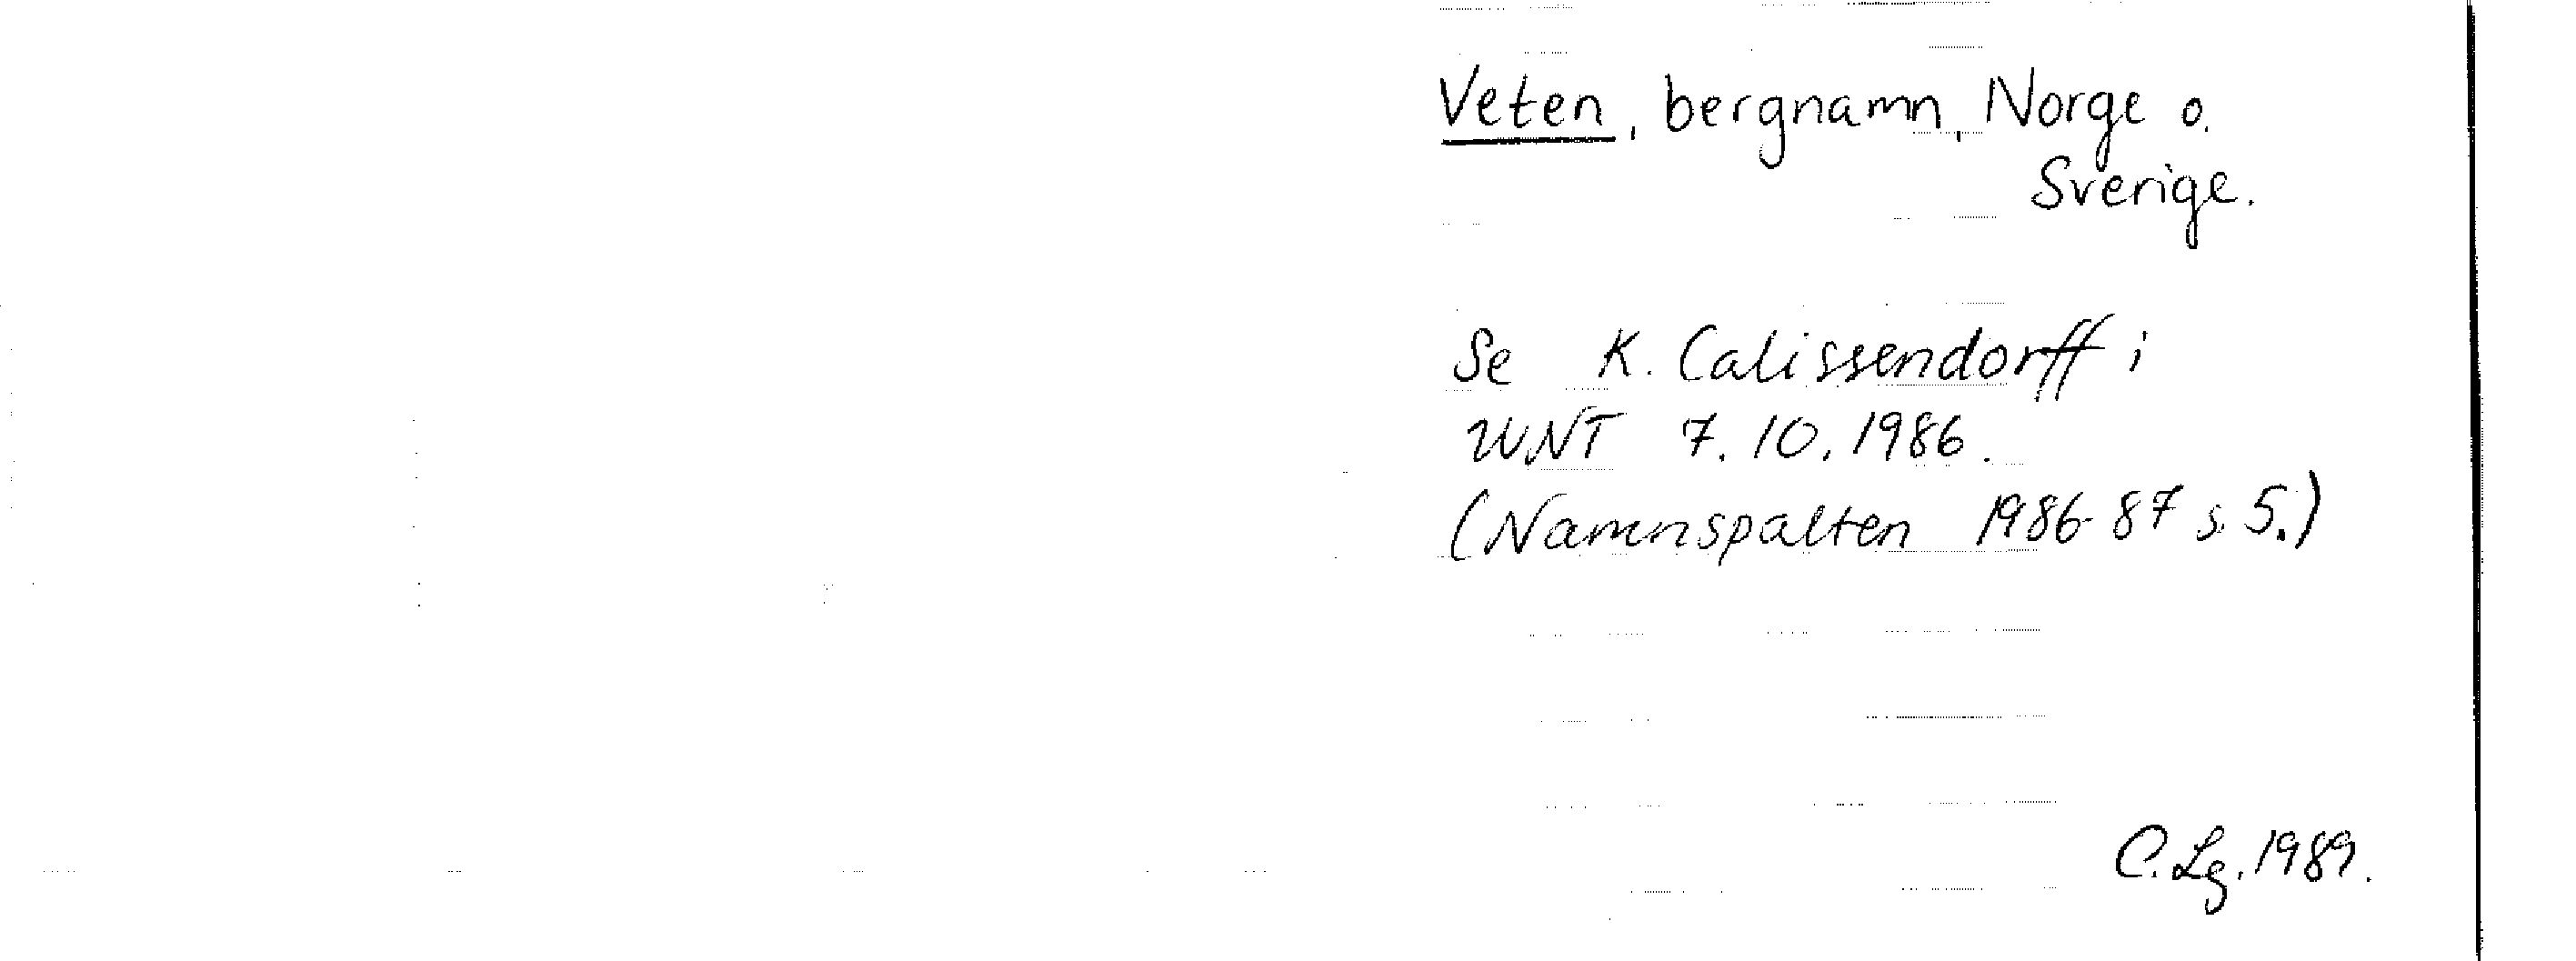 Veten, bergnamn, Norge o.
Sverige.
Se K. Calissendorff i
UNT 7.10.1986.
(Namnspalten 1986-87 s. 5.)
C. Lg. 1989.